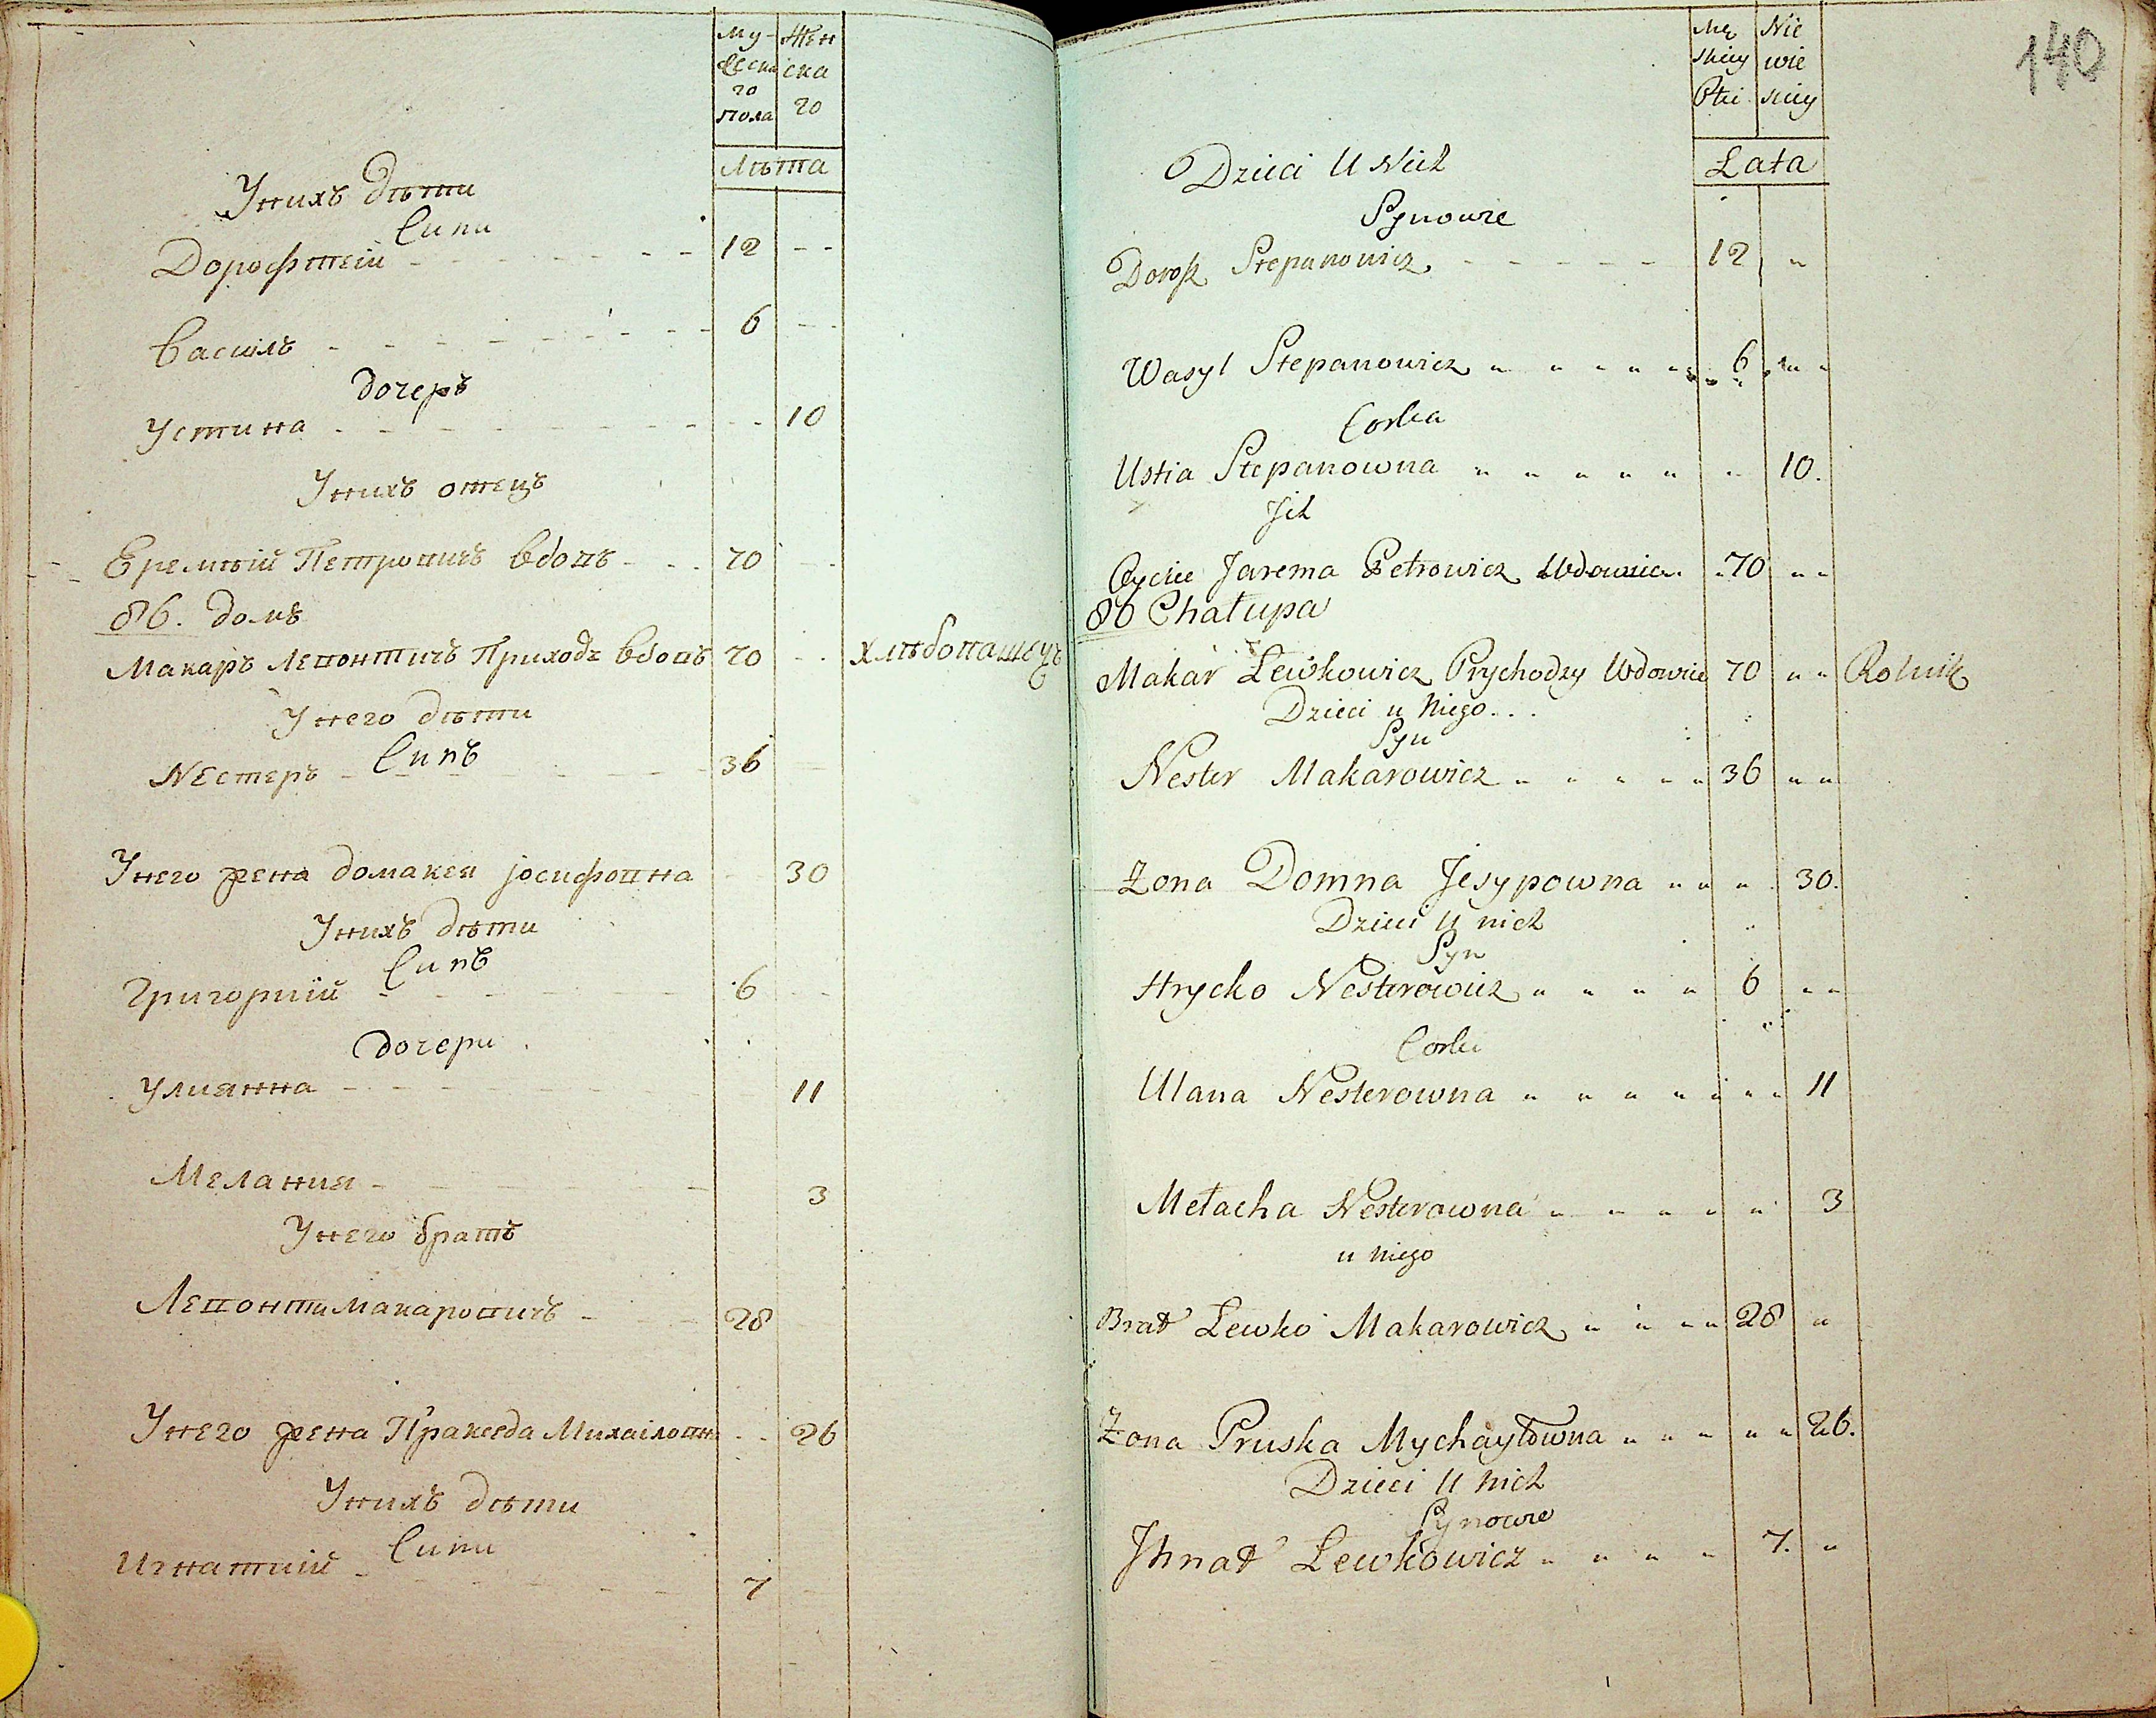 Му- Жен
жеска ска
го го
пола
Лѣта
Унихъ дѣти
Сини
Дорофтей 12
Василь 6
дочеръ
Устина 10
Унихъ отецъ
Еремѣй Петровичъ вдовъ 70
86. домъ
Макаръ Левонтичъ Приходъ вдовъ 70 хлѣбопашецъ
Унего дѣти
Синъ
Нестеръ 36
Унего жена домакея јосифовна 30
Унихъ дѣти
Синъ
Григорий 6
дочери
Улиянна 11
Мелания 3
Унего братъ
Левонти макаровичъ 28
Унего жена Пракседа Михаіловн 26
Унихъ дѣти
Сини
Игнатий 7
140
Mę Nie
skiey wie
Płci skiey
Lata
Dzieci U Nich
Synowie
Dorosz Stepanowicz 12
Wasyl Stepanowicz 6
Corka
Ustia Stepanowna 10.
Jch
Oyciec Jarema Petrowicz Wdowiec 70
86 Chałupa
Makar Lewkowicz Prychodzy Wdowiec 70 Rolnik
Dzieci u niego...
Syn
Nester Makarowicz 36
Żona Domna Jesypowna 30.
Dzieci U nich
Syn
Hrycko Nesterowicz 6
Corki
Ulana Nesterowna 11
Mełacha Nesterowna 3
u niego
Brat Lewko Makarowicz 28
Żona Pruska Mychayłowna 26.
Dzieci U nich
Synowie
Jhnat Lewkowicz 7.